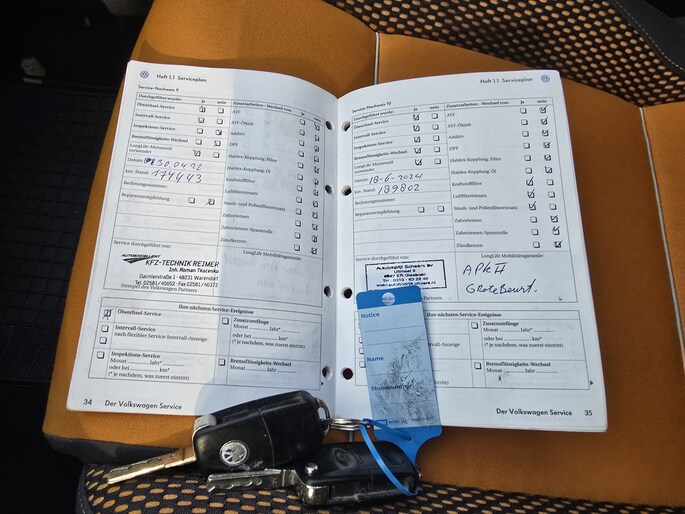 Heft 1.1 Serviceplan
Service-Nachweis 9
Durchgeführt wurde: ja nein
Ölwechsel-Service
Intervall-Service
Inspektions-Service
Bremsflüssigkeits-Wechsel
LongLife-Motorenöl
verwendet
Datum: 30.04.
km-Stand: 174443
Rechnungsnummer:
Reparaturempfehlung
Zusatzarbeiten - Wechsel von: ja nein
ATF
ATF-Ölsieb
Additiv
DPF
Haldex-Kupplung, Filter
Haldex-Kupplung, Öl
Kraftstofffilter
Luftfiltereinsatz
Staub- und Pollenfiltereinsatz
Zahnriemen
Zahnriemen
Zündkerzen
Service durchgeführt von:
LongLife Mobilitätsgarantie:
KFZ-TECHNIK REIMER
Inh. Roman Tkacenko
Daimlerstraße 1 · 48231 Warendorf
Tel. 02581/45652 · Fax 02581/46372
Stempel des Volkswagen Partners
Ihre nächsten Service-Ereignisse
Ölwechsel-Service
Intervall-Service
nach flexibler Service-Intervall-Anzeige
Inspektions-Service
Monat Jahr*
oder bei km*
(* je nachdem, was zuerst eintritt)
Zusatzumfänge
Monat Jahr*
oder bei km*
(* je nachdem, was zuerst eintritt)
Bremsflüssigkeits-Wechsel
Monat Jahr
34 Der Volkswagen Service
Heft 1.1 Serviceplan
Service-Nachweis 10
Durchgeführt wurde: ja nein
Ölwechsel-Service
Intervall-Service
Inspektions-Service
Bremsflüssigkeits-Wechsel
LongLife-Motorenöl
verwendet
Datum: 18-6-2024
km-Stand: 189802
Rechnungsnummer:
Reparaturempfehlung
Zusatzarbeiten - Wechsel von: ja nein
ATF
ATF-Ölsieb
Additiv
DPF
Haldex-Kupplung, Filter
Haldex-Kupplung, Öl
Kraftstofffilter
Luftfiltereinsatz
Staub- und Pollenfiltereinsatz
Zahnriemen
Zahnriemen
Zündkerzen
Service durchgeführt von:
LongLife Mobilitätsgarantie:
Autobedrijf Schoers BV
Partners
APK II
Grote Beurt.
Ihre nächsten Service-Ereignisse
Zusatzumfänge
Monat Jahr*
oder bei km*
(* je nachdem, was zuerst eintritt)
Bremsflüssigkeits-Wechsel
Monat Jahr
Der Volkswagen Service 35
Notice
Name